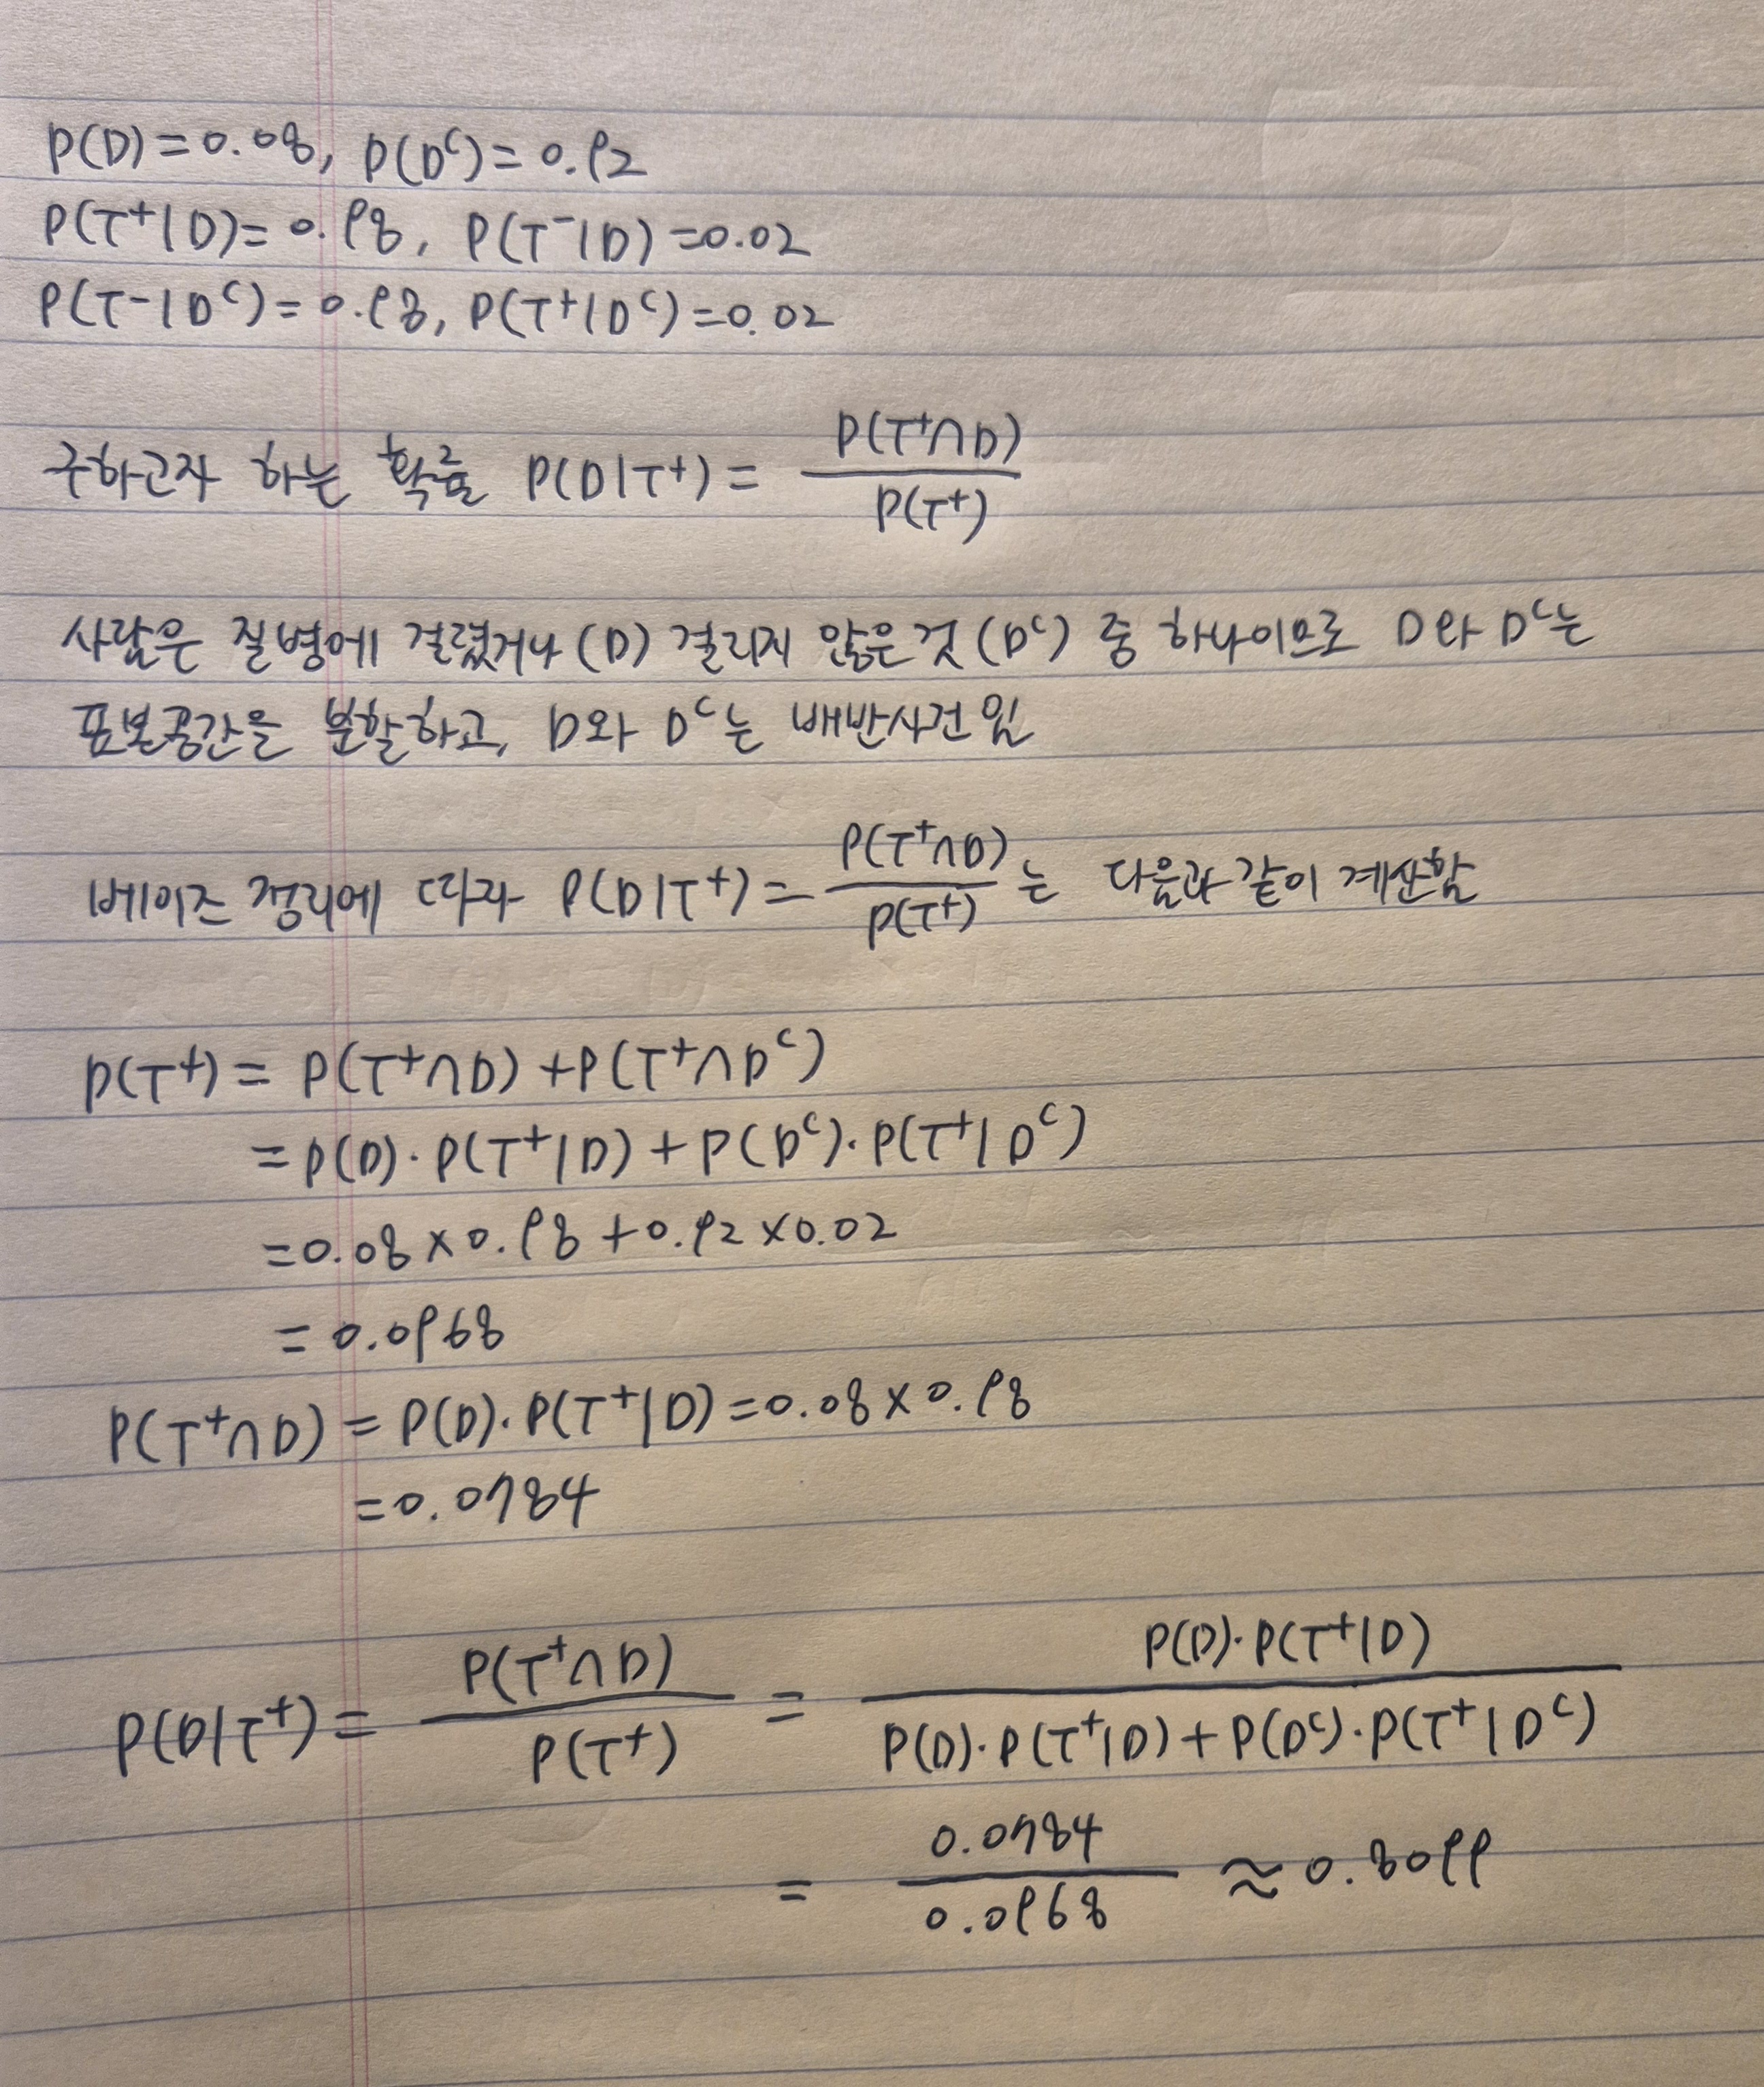 P(D)=0.08, P(Dᶜ)=0.92
P(T⁺|D)=0.98, P(T⁻|D)=0.02
P(T⁻|Dᶜ)=0.98, P(T⁺|Dᶜ)=0.02
구하고자 하는 확률 P(D|T⁺) = P(T⁺∩D) / P(T⁺)
사람은 질병에 걸렸거나 (D) 걸리지 않은 것 (Dᶜ) 중 하나이므로 D와 Dᶜ는
표본공간을 분할하고, D와 Dᶜ는 배반사건임
베이즈 정리에 따라 P(D|T⁺) = P(T⁺∩D) / P(T⁺) 는 다음과 같이 계산함
P(T⁺) = P(T⁺∩D) + P(T⁺∩Dᶜ)
= P(D)·P(T⁺|D) + P(Dᶜ)·P(T⁺|Dᶜ)
=0.08×0.98+0.92×0.02
= 0.0968
P(T⁺∩D) = P(D)·P(T⁺|D)=0.08×0.98
=0.0784
P(D|T⁺) = P(T⁺∩D) / P(T⁺) = P(D)·P(T⁺|D) / P(D)·P(T⁺|D) + P(Dᶜ)·P(T⁺|Dᶜ)
= 0.0784 / 0.0968 ≈ 0.8099